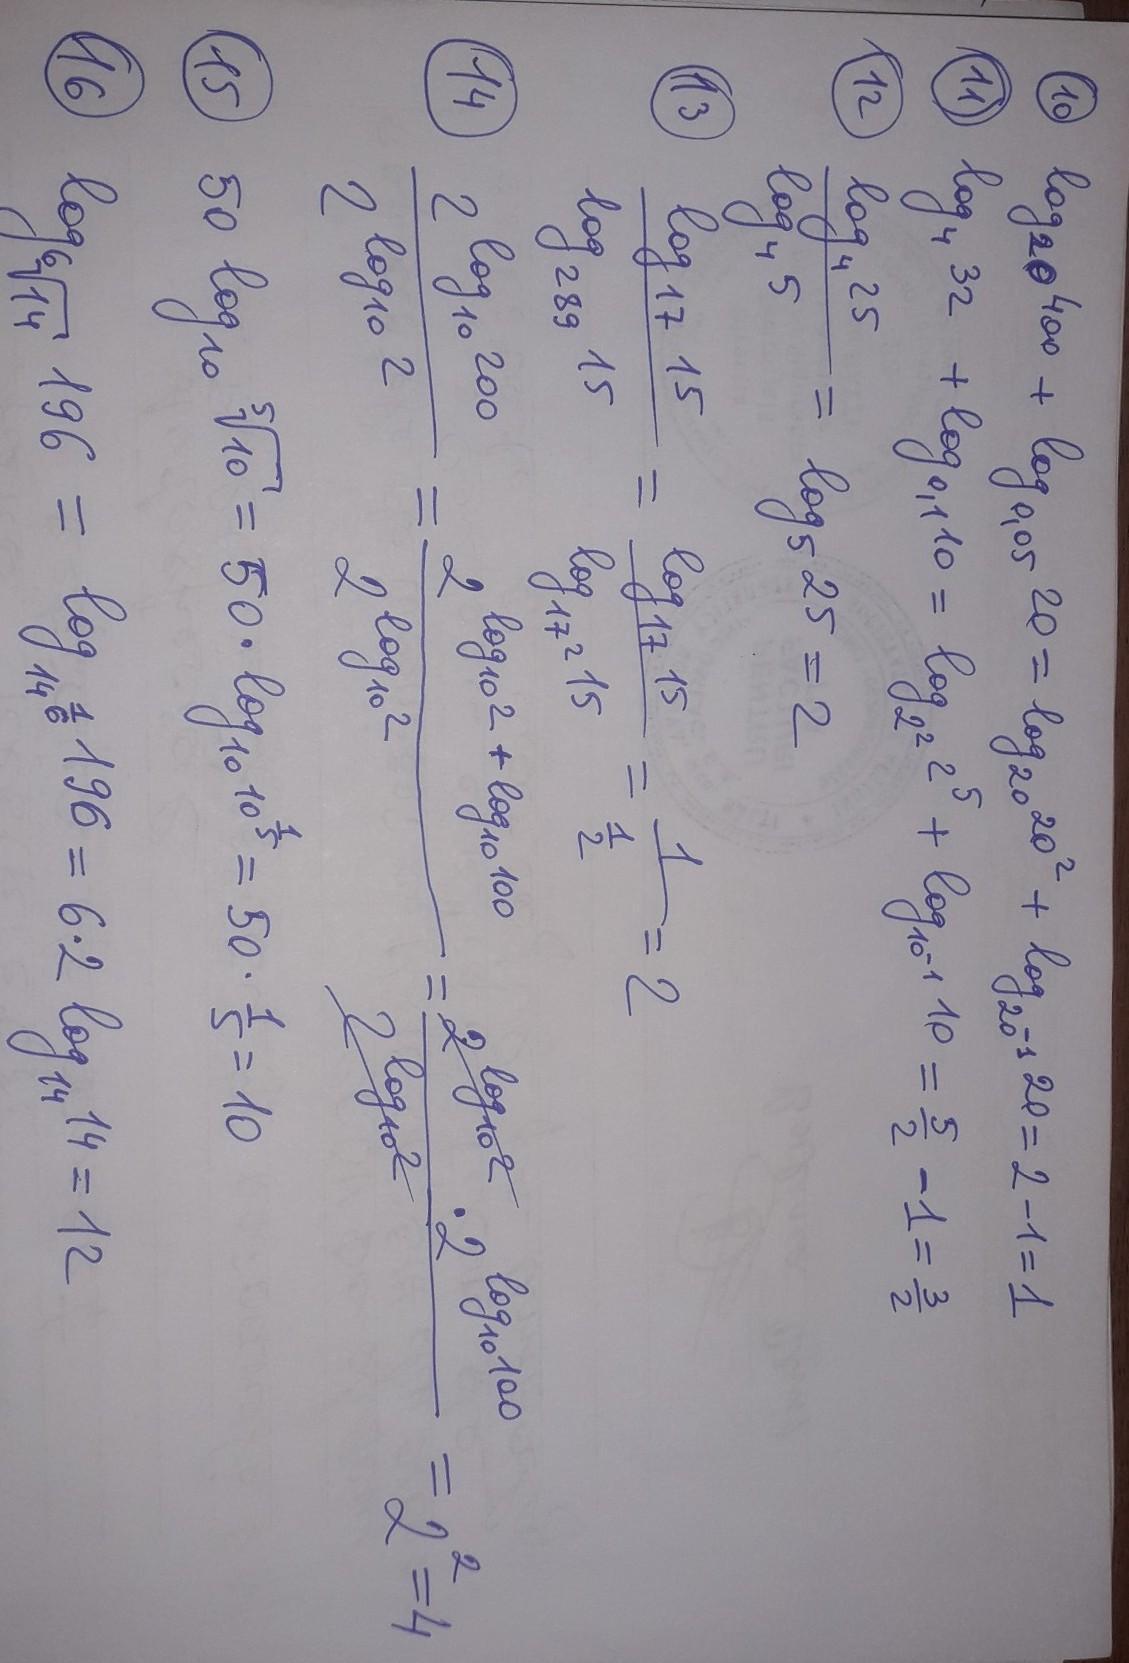 10 log₂₀ 400 + log₀,₀₅ 20 = log₂₀ 20² + log₂₀⁻¹ 20 = 2 - 1 = 1
11 log₄ 32 + log₀,₁ 10 = log₂² 2⁵ + log₁₀⁻¹ 10 = 5/2 - 1 = 3/2
12 log₄ 25 / log₄ 5 = log₅ 25 = 2
13 log₁₇ 15 / log₂₈₉ 15 = log₁₇ 15 / log₁₇² 15 = 1 / (1/2) = 2
14 2^(log₁₀ 200) / 2^(log₁₀ 2) = 2^(log₁₀ 2 + log₁₀ 100) / 2^(log₁₀ 2) = 2^(log₁₀ 2) · 2^(log₁₀ 100) / 2^(log₁₀ 2) = 2² = 4
15 50 log₁₀ ⁵√10 = 50 · log₁₀ 10^(1/5) = 50 · 1/5 = 10
16 log_(⁶√14) 196 = log_(14^(1/6)) 196 = 6·2 log₁₄ 14 = 12